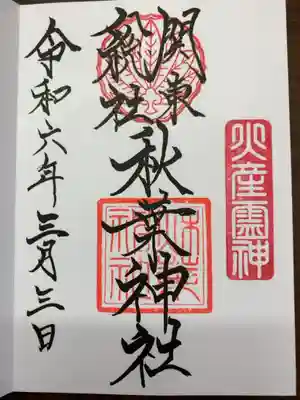 火産霊神
関東
総社
秋葉神社
令和六年三月三日